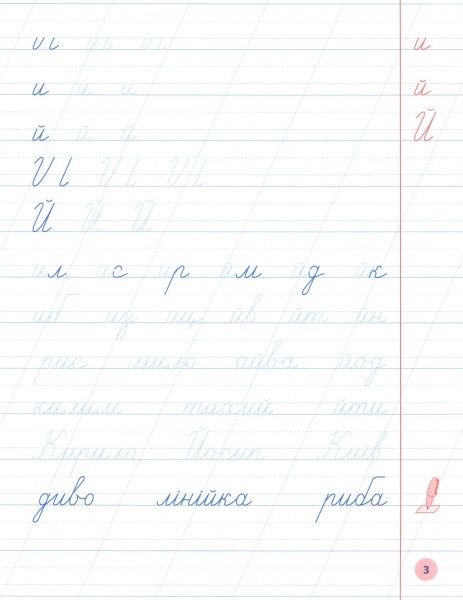 и и и
и и и и
й й й й
Й
И И И
Й Й Й
ил ис ир йм йд йк
иб из иц йв йт йн
рис мило айва йод
килим тихий йти
Кирило Йосип Київ
диво лінійка риба
3